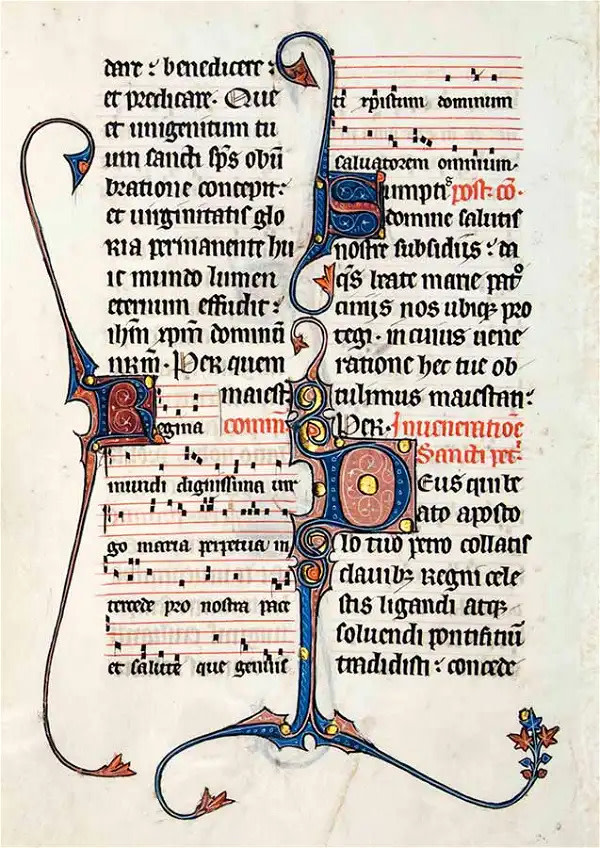 dare : benedicere :
et predicare. Que
et unigenitum tu
um sancti sp̄s obū
bratione concepit :
et uirginitatis glo
ria permanente hu
ic mundo lumen
eternum effudit :
ihm̄ xpm̄ dominū
nr̄m. Per quem
maiest
Regina comm̄
mundi dignissima uir
go maria perpetua in
tercede pro nostra pace
et salutē que genuis
ti xp̄istum dominum
saluatorem omnium.
Sumptis post cō.
domine salutis
nostre subsidiis : da
q̄s beate marie patͦ
ciniis nos ubiqꝫ pro
tegi. in cuius uene
ratione hec tue ob
tulimus maiestati :
Per. In ueneratiōe
Sancti pet.
Deus qui be
ato aposto
lo tuo petro collatis
clauibꝫ regni cele
stis ligandi atqꝫ
soluendi pontifitiū
tradidisti : concede